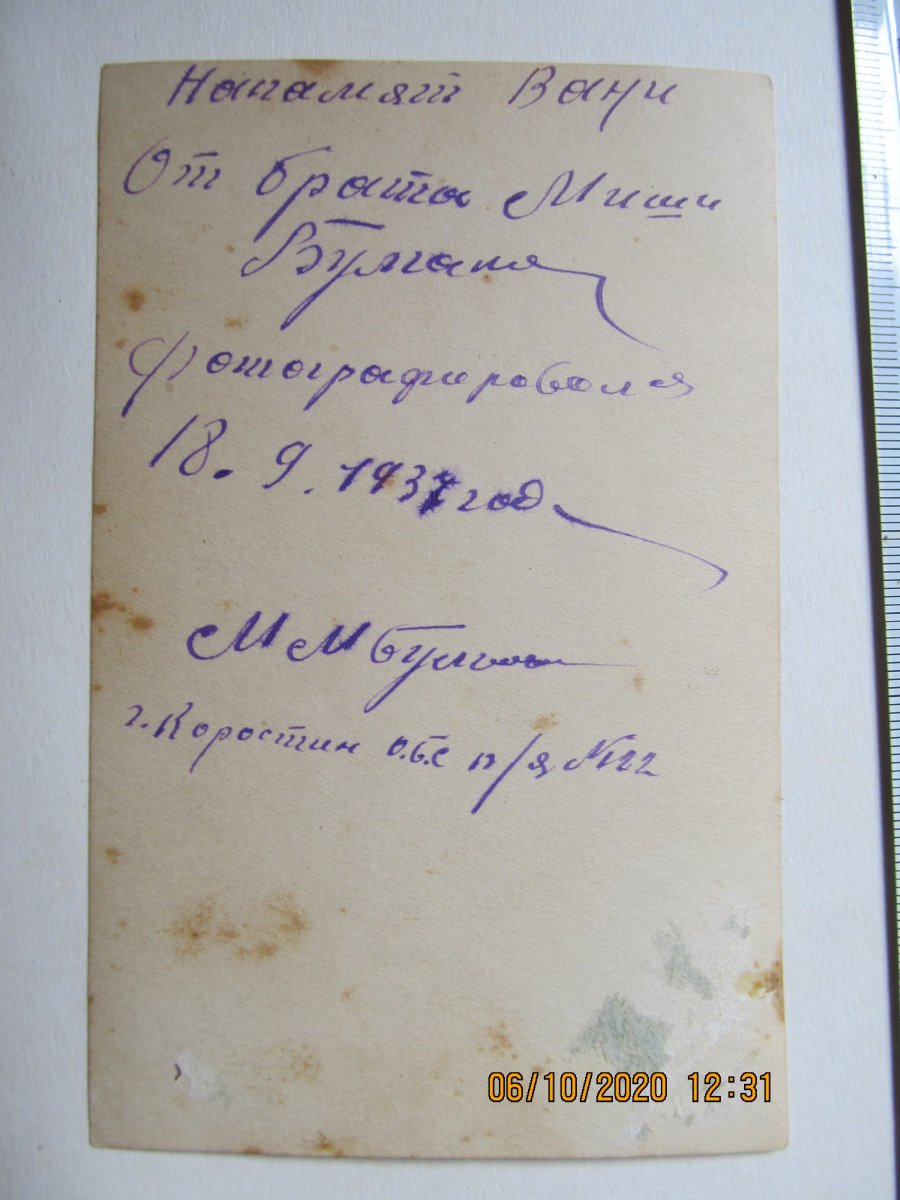 Напамят Вани
От брата Миши
Булгака
Фотографировался
18. 9. 1937 год
ММ
г. Коростин о.б.с п/я №22
06/10/2020 12:31